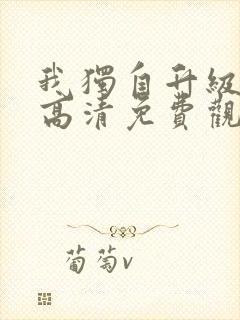 我獨自升級
高清免費觀
葡萄v